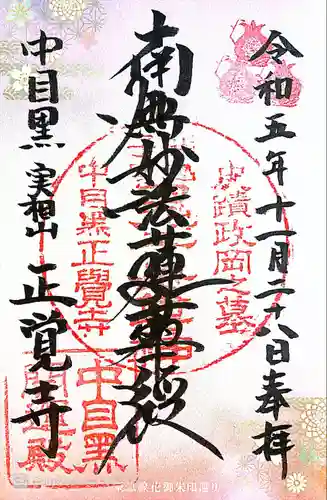 令和五年十一月二十八日奉拝
南無妙法蓮華経
中目黒 実相山 正覚寺
史蹟政岡之墓
中目黒正覺寺
中目黒